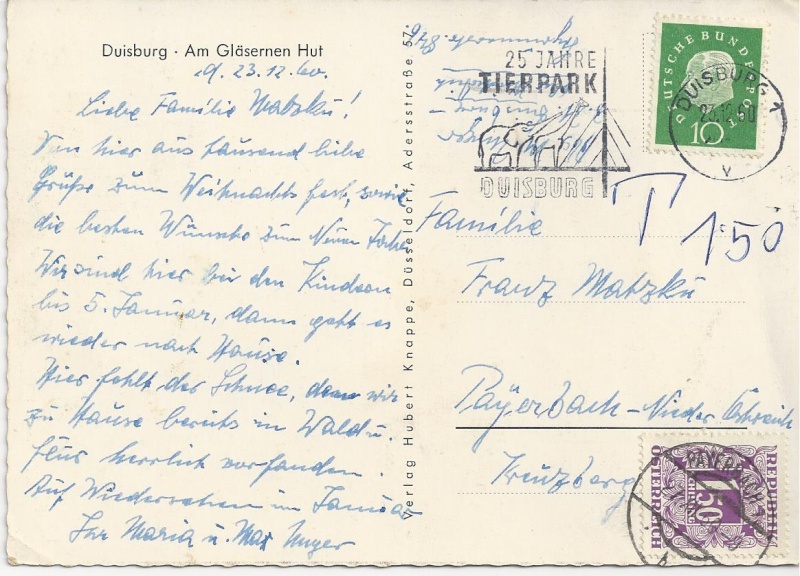 Duisburg · Am Gläsernen Hut
d. 23.12.60.
Liebe Familie Matzku!
Von hier aus tausend liebe
Grüße zum Weihnachtsfest, sowie
die besten Wünsche zum Neuen Jahre
Wir sind hier bei den Kindern
bis 5. Januar, dann geht es
wieder nach Hause.
Hier fehlt der Schnee, den wir
zu Hause bereits in Wald u.
Flur herrlich vorfanden.
Auf Wiedersehen im Januar
Ihr Maria u. Max
Verlag Hubert Knappe, Düsseldorf, Adersstraße 57
25 JAHRE
TIERPARK
DUISBURG
DEUTSCHE BUNDESPOST
10
DUISBURG 1
23.12.60
V
T 150
Familie
Franz Matzku
Payerbach - Nieder Österreich
Kreuzberg
PAYERBACH
REPUBLIK
ÖSTERREICH
1.50